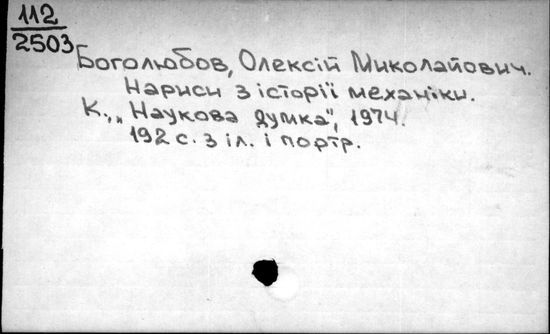 112
2503
Боголюбов, Олексій Миколайович.
Нариси з історії механіки.
К., „Наукова думка", 1974.
192 с. з іл. і портр.